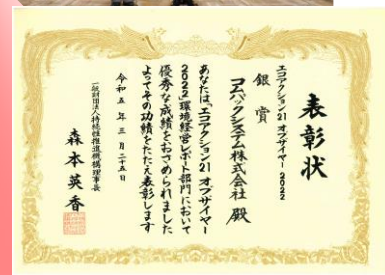 表彰状
エコアクション21 オブザイヤー 2022
銀賞
コバックシステム株式会社 殿
あなたは、エコアクション21 オブザイヤー
2022 環境経営レポート部門において
優秀な成績をおさめられました
よってその功績をたたえ表彰します
令和五年三月二十五日
一般財団法人持続性推進機構理事長
森本英香